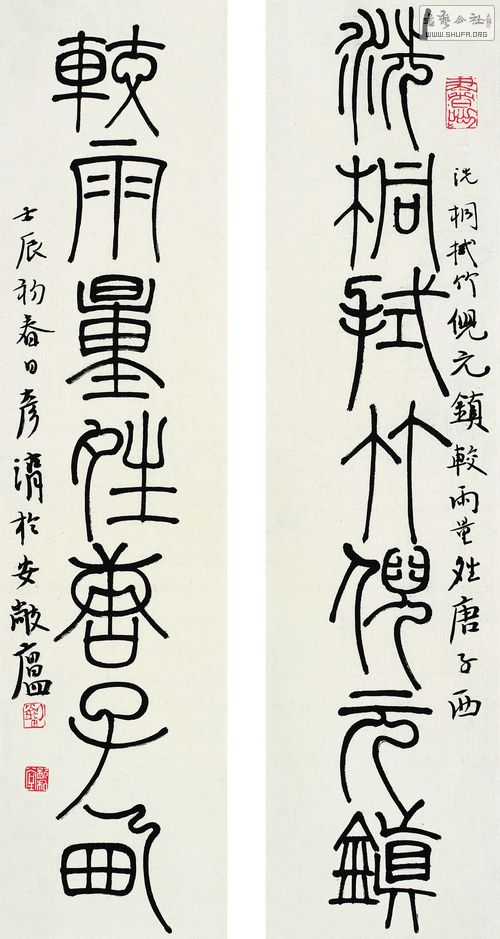 書藝公社
WWW.SHUFA.ORG
洗桐拭竹倪元鎮
洗桐拭竹倪元鎮較雨量夝唐子西
較雨量夝唐子西
壬辰初春日彥湖於安